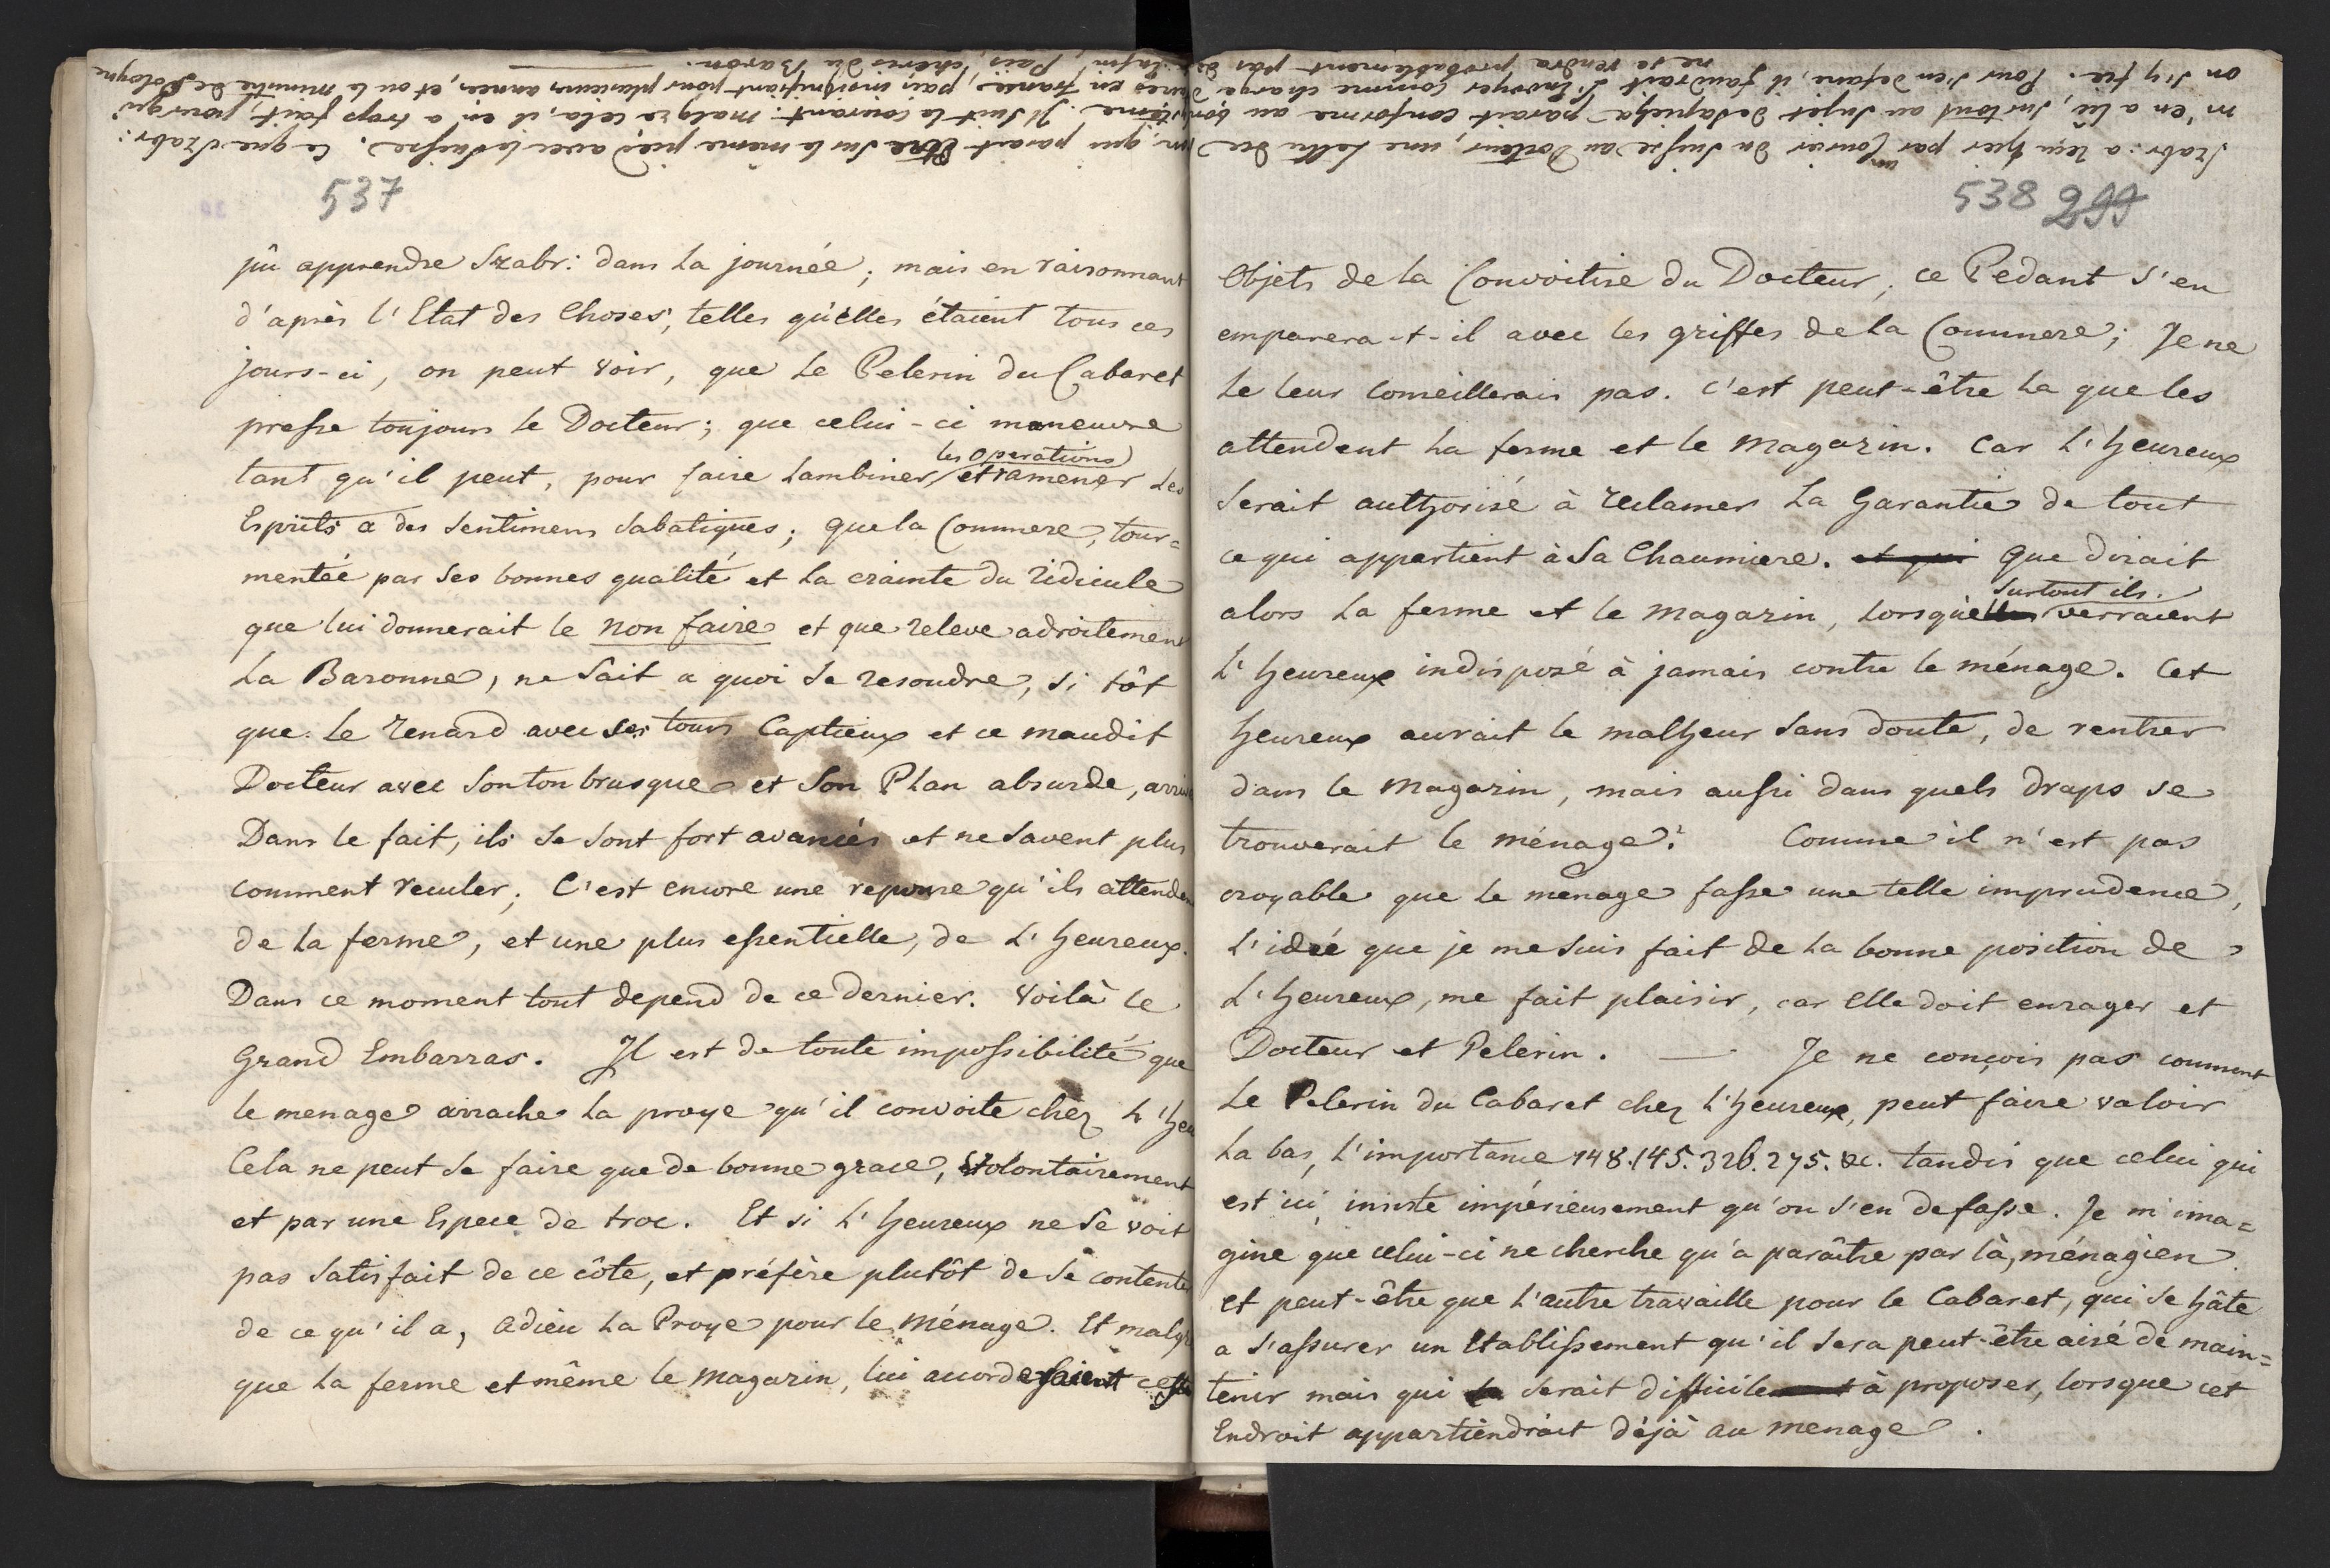 537
pû apprendre Szabr: dans la journée; mais en raisonnant
d'après l'Etat des Choses, telles qu'elles étaient tous ces
jours-ci, on peut voir, que le Pelerin du Cabaret
presse toujours le Docteur; que celui-ci maneuvre
tant qu'il peut, pour faire lambiner les operations et ramener les
Esprits a des sentimens sabatiques; que la Commere, tour=
mentée par ses bonnes qualité et la crainte du ridicule
que lui donnerait le non faire et que releve adroitement
la Baronne, ne sait a quoi se resoudre, si tôt
que le renard avec ses tours captieux et ce maudit
Docteur avec son ton brusque et son Plan absurde,
Dans le fait, ils se sont fort avancés et ne savent plus
comment reculer; C'est encore une reponse qu'ils attenden
de la ferme, et une plus essentielle, de l'heureux.
Dans ce moment tout depend de ce dernier. Voilà le
Grand Embarras. Il est de toute impossibilité que
le menage arrache la proye qu'il convoite chez l'heu
Cela ne peut se faire que de bonne grace, volontairement
et par une Espece de troc. Et si l'heureux ne se voit
pas satisfait de ce côte, et préfère plutôt de se contente
de ce qu'il a, adieu la Proye pour le ménage. Et malg
que la ferme et même le magazin, lui accorderaient
538 299
Objets de la Convoitise du Docteur; ce Pedant s'en
emparera-t-il avec les griffes de la Commere; Je ne
le leur conseillerais pas. C'est peut-être la que les
attendent la ferme et le magazin. Car l'heureux
serait authorisé à reclamer la Garantie de tout
ce qui appartient à sa Chaumiere. et qui que dirait
alors la ferme et le magazin, lorsqu' surtout ils verraient
l'heureux indisposé à jamais contre le ménage. Cet
heureux aurait le malheur sans doute, de rentrer
dans le magazin, mais aussi dans quels draps se
trouverait le ménage? Comme il n'est pas
croyable que le menage fasse une telle imprudence,
l'idée que je me suis fait de la bonne position de
l'heureux, me fait plaisir, car elle doit enrager et
Docteur et Pelerin. — Je ne conçois pas comment
le Pelerin du Cabaret chez l'heureux, peut faire valoir
la bas, l'importance 148.145.326.275.&c. tandis que celui qui
est ici, insiste impérieusement qu'on s'en defasse. Je m'ima=
gine que celui-ci ne cherche qu'a paraître par là, ménagien
et peut-être que l'autre travaille pour le Cabaret, qui se hâte
a s'assurer un Etablissement qu'il sera peut-être aisé de main=
tenir mais qui serait difficile à proposer, lorsque cet
Endroit appartiendrait déjà au menage.
Szabr: a reçu hier par un Courier du Suisse au Docteur, une Lettre de
qui parait Etre sur le même pied avec le Suisse. Ce que Szabr:
m'en a lû, surtout au sujet de Sapieha parait conforme au bon
Il suit le courant: malgré cela, il en a trop fait, pour qu'
on s'y fie. Pour s'en defaire, il faudrait l'Envoyer comme chargé
en france, païs insignifiant pour plusieurs années, et où le ministre de Pologne
ne se rendra probablement pas
Païs chéris du Baron.